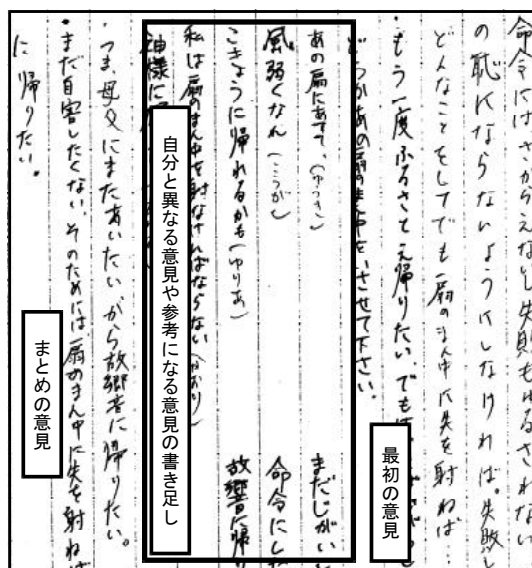 命令にはさからえないし失敗もゆるされない
の恥にならないようにしなければ。失敗し
どんなことをしてでも扇のまん中に矢を射ねば…
・もう一度ふるさとえ帰りたい。でも
最初の意見
どうかあの扇のまん中を、いさせて下さい。
あの扇にあてて、
まだじがい
風。弱くなれ
命令にし
こきょうに帰れるかも（ゆりあ）
故郷に帰り
私は扇のまん中を射なければならない（かおり）
自分と異なる意見や参考になる意見の書き足し
神様に
・つま、母父にまたあいたいから故郷に帰りたい。
・まだ自害したくない。そのためには、扇のまん中に矢を射ねば
まとめの意見
に帰りたい。